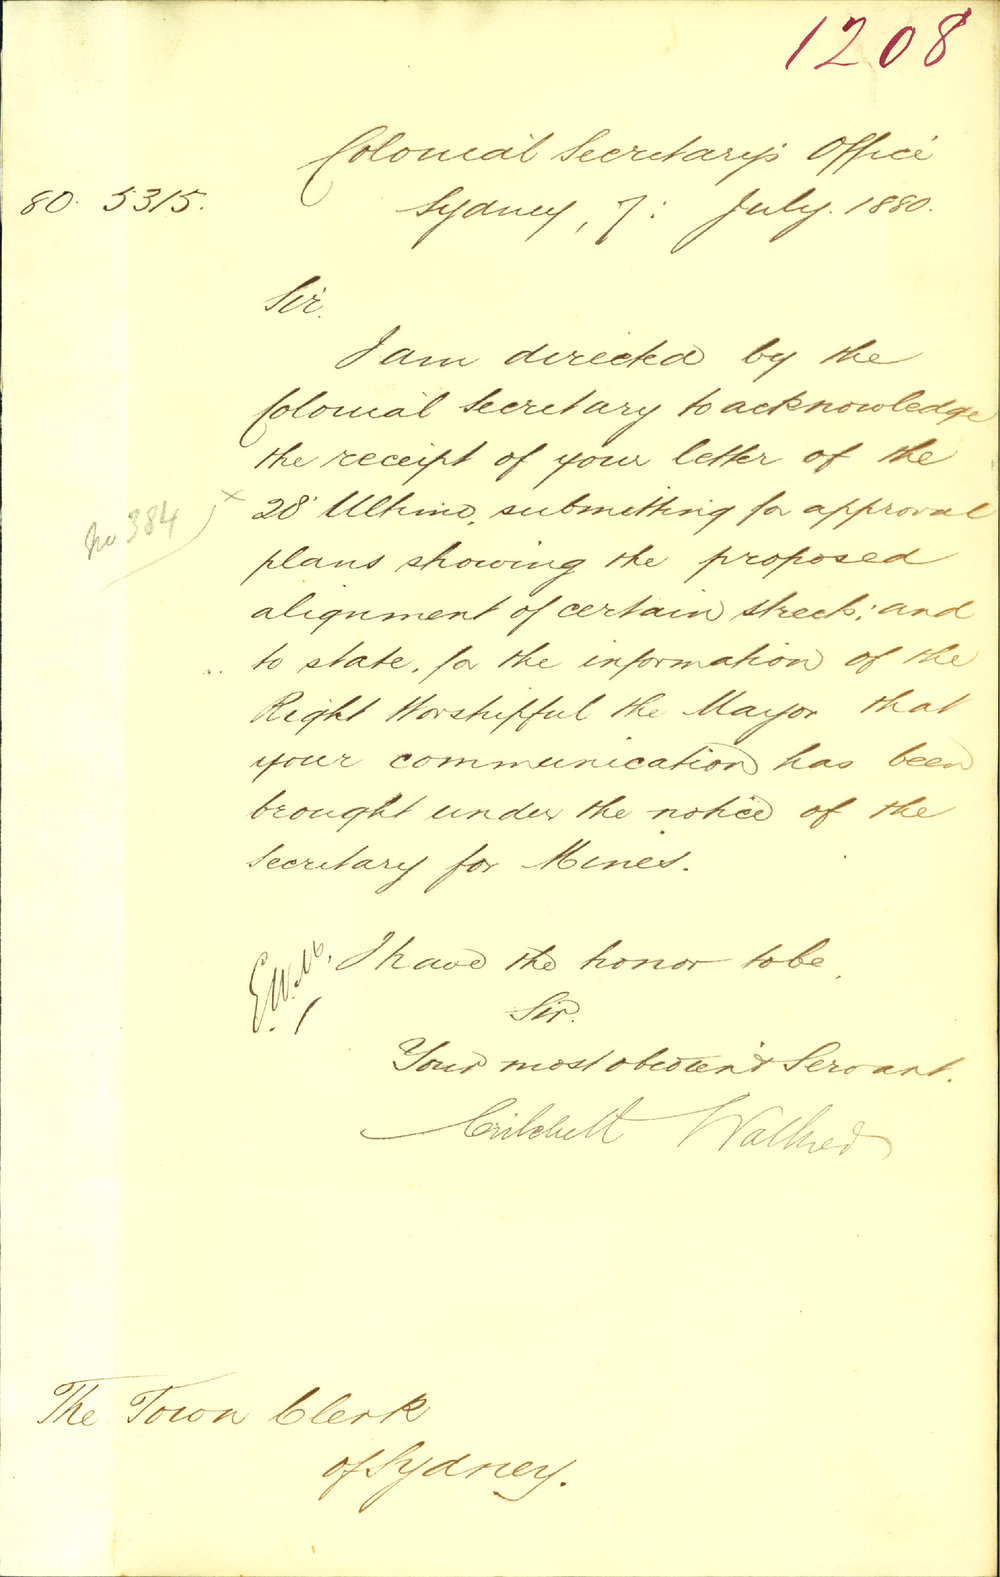 1208
Colonial Secretary's Office
80. 5315.
Sydney, 7: July. 1880.
Sir.
I am directed by the
Colonial Secretary to acknowledge
the receipt of your letter of the
No 384 x
28' Ultimo, submitting for approval
plans showing the proposed
alignment of certain streets; and
to state, for the information of the
Right Worshipful the Mayor that
your communication has been
brought under the notice of the
Secretary for Mines.
E.W.M. I have the honor to be
Sir.
Your most obedient Servant.
Critchett Walker
The Town Clerk
of Sydney.